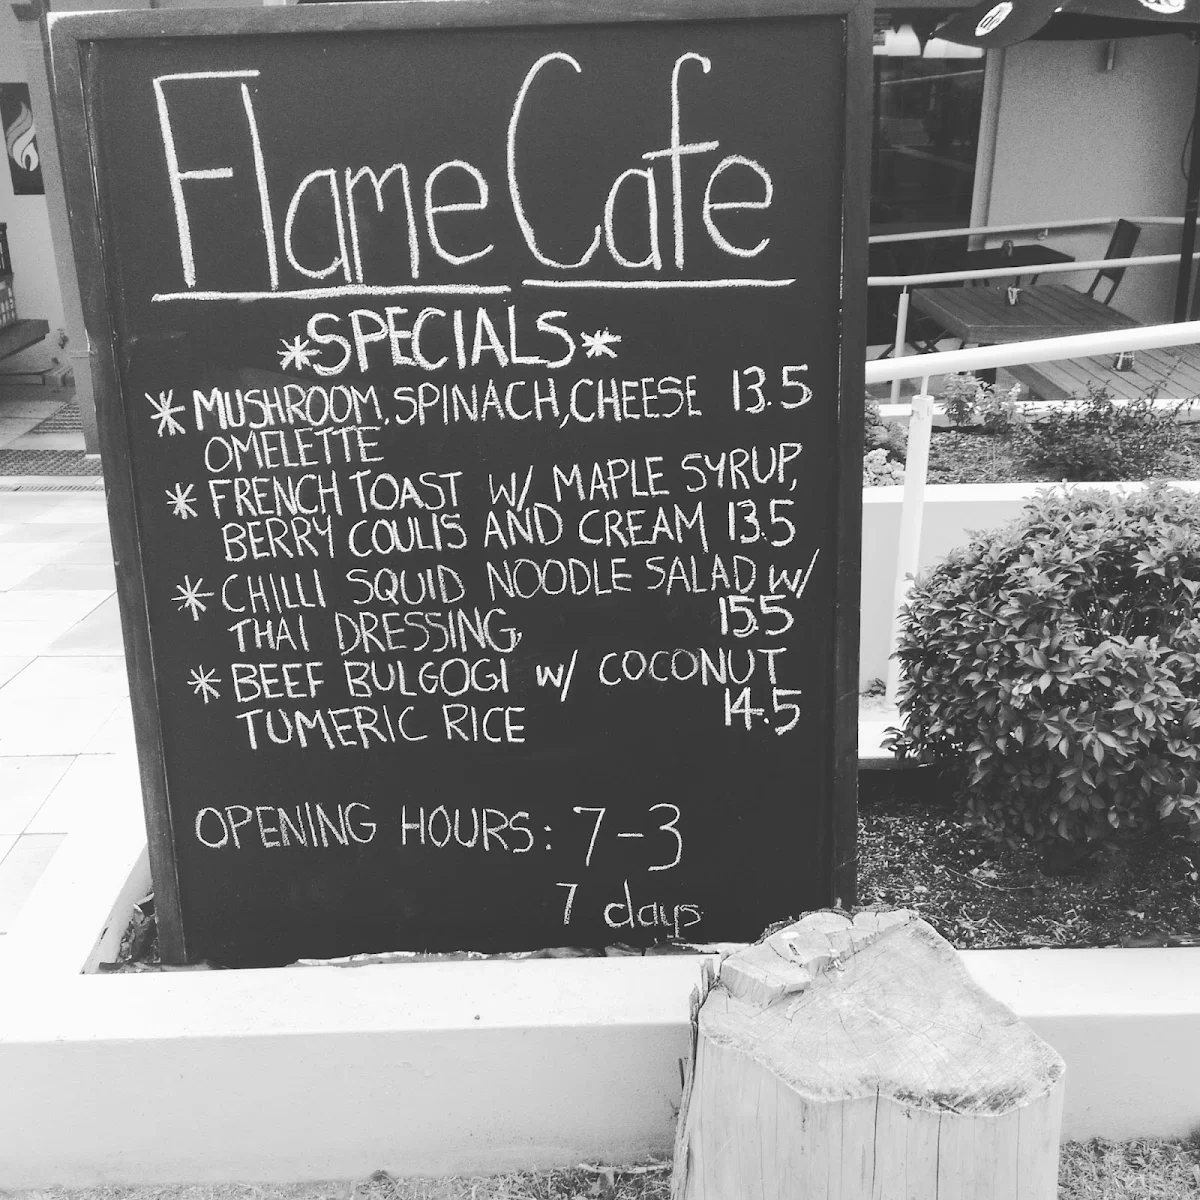 Flame Cafe
*SPECIALS*
* MUSHROOM, SPINACH, CHEESE 13.5
OMELETTE
* FRENCH TOAST W/ MAPLE SYRUP,
BERRY COULIS AND CREAM 13.5
* CHILLI SQUID NOODLE SALAD W/
THAI DRESSING 15.5
* BEEF BULGOGI W/ COCONUT
TUMERIC RICE 14.5
OPENING HOURS: 7-3
7 days